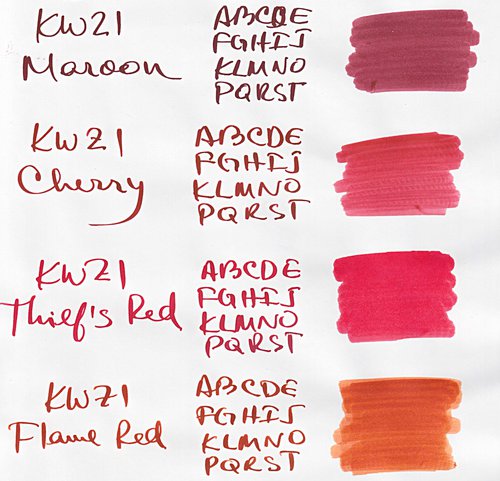 KWZI
Maroon
ABCDE
FGHIJ
KLMNO
PQRST
KWZI
Cherry
ABCDE
FGHIJ
KLMNO
PQRST
KWZI
Thief's Red
ABCDE
FGHIJ
KLMNO
PQRST
KWZI
Flame Red
ABCDE
FGHIJ
KLMNO
PQRST